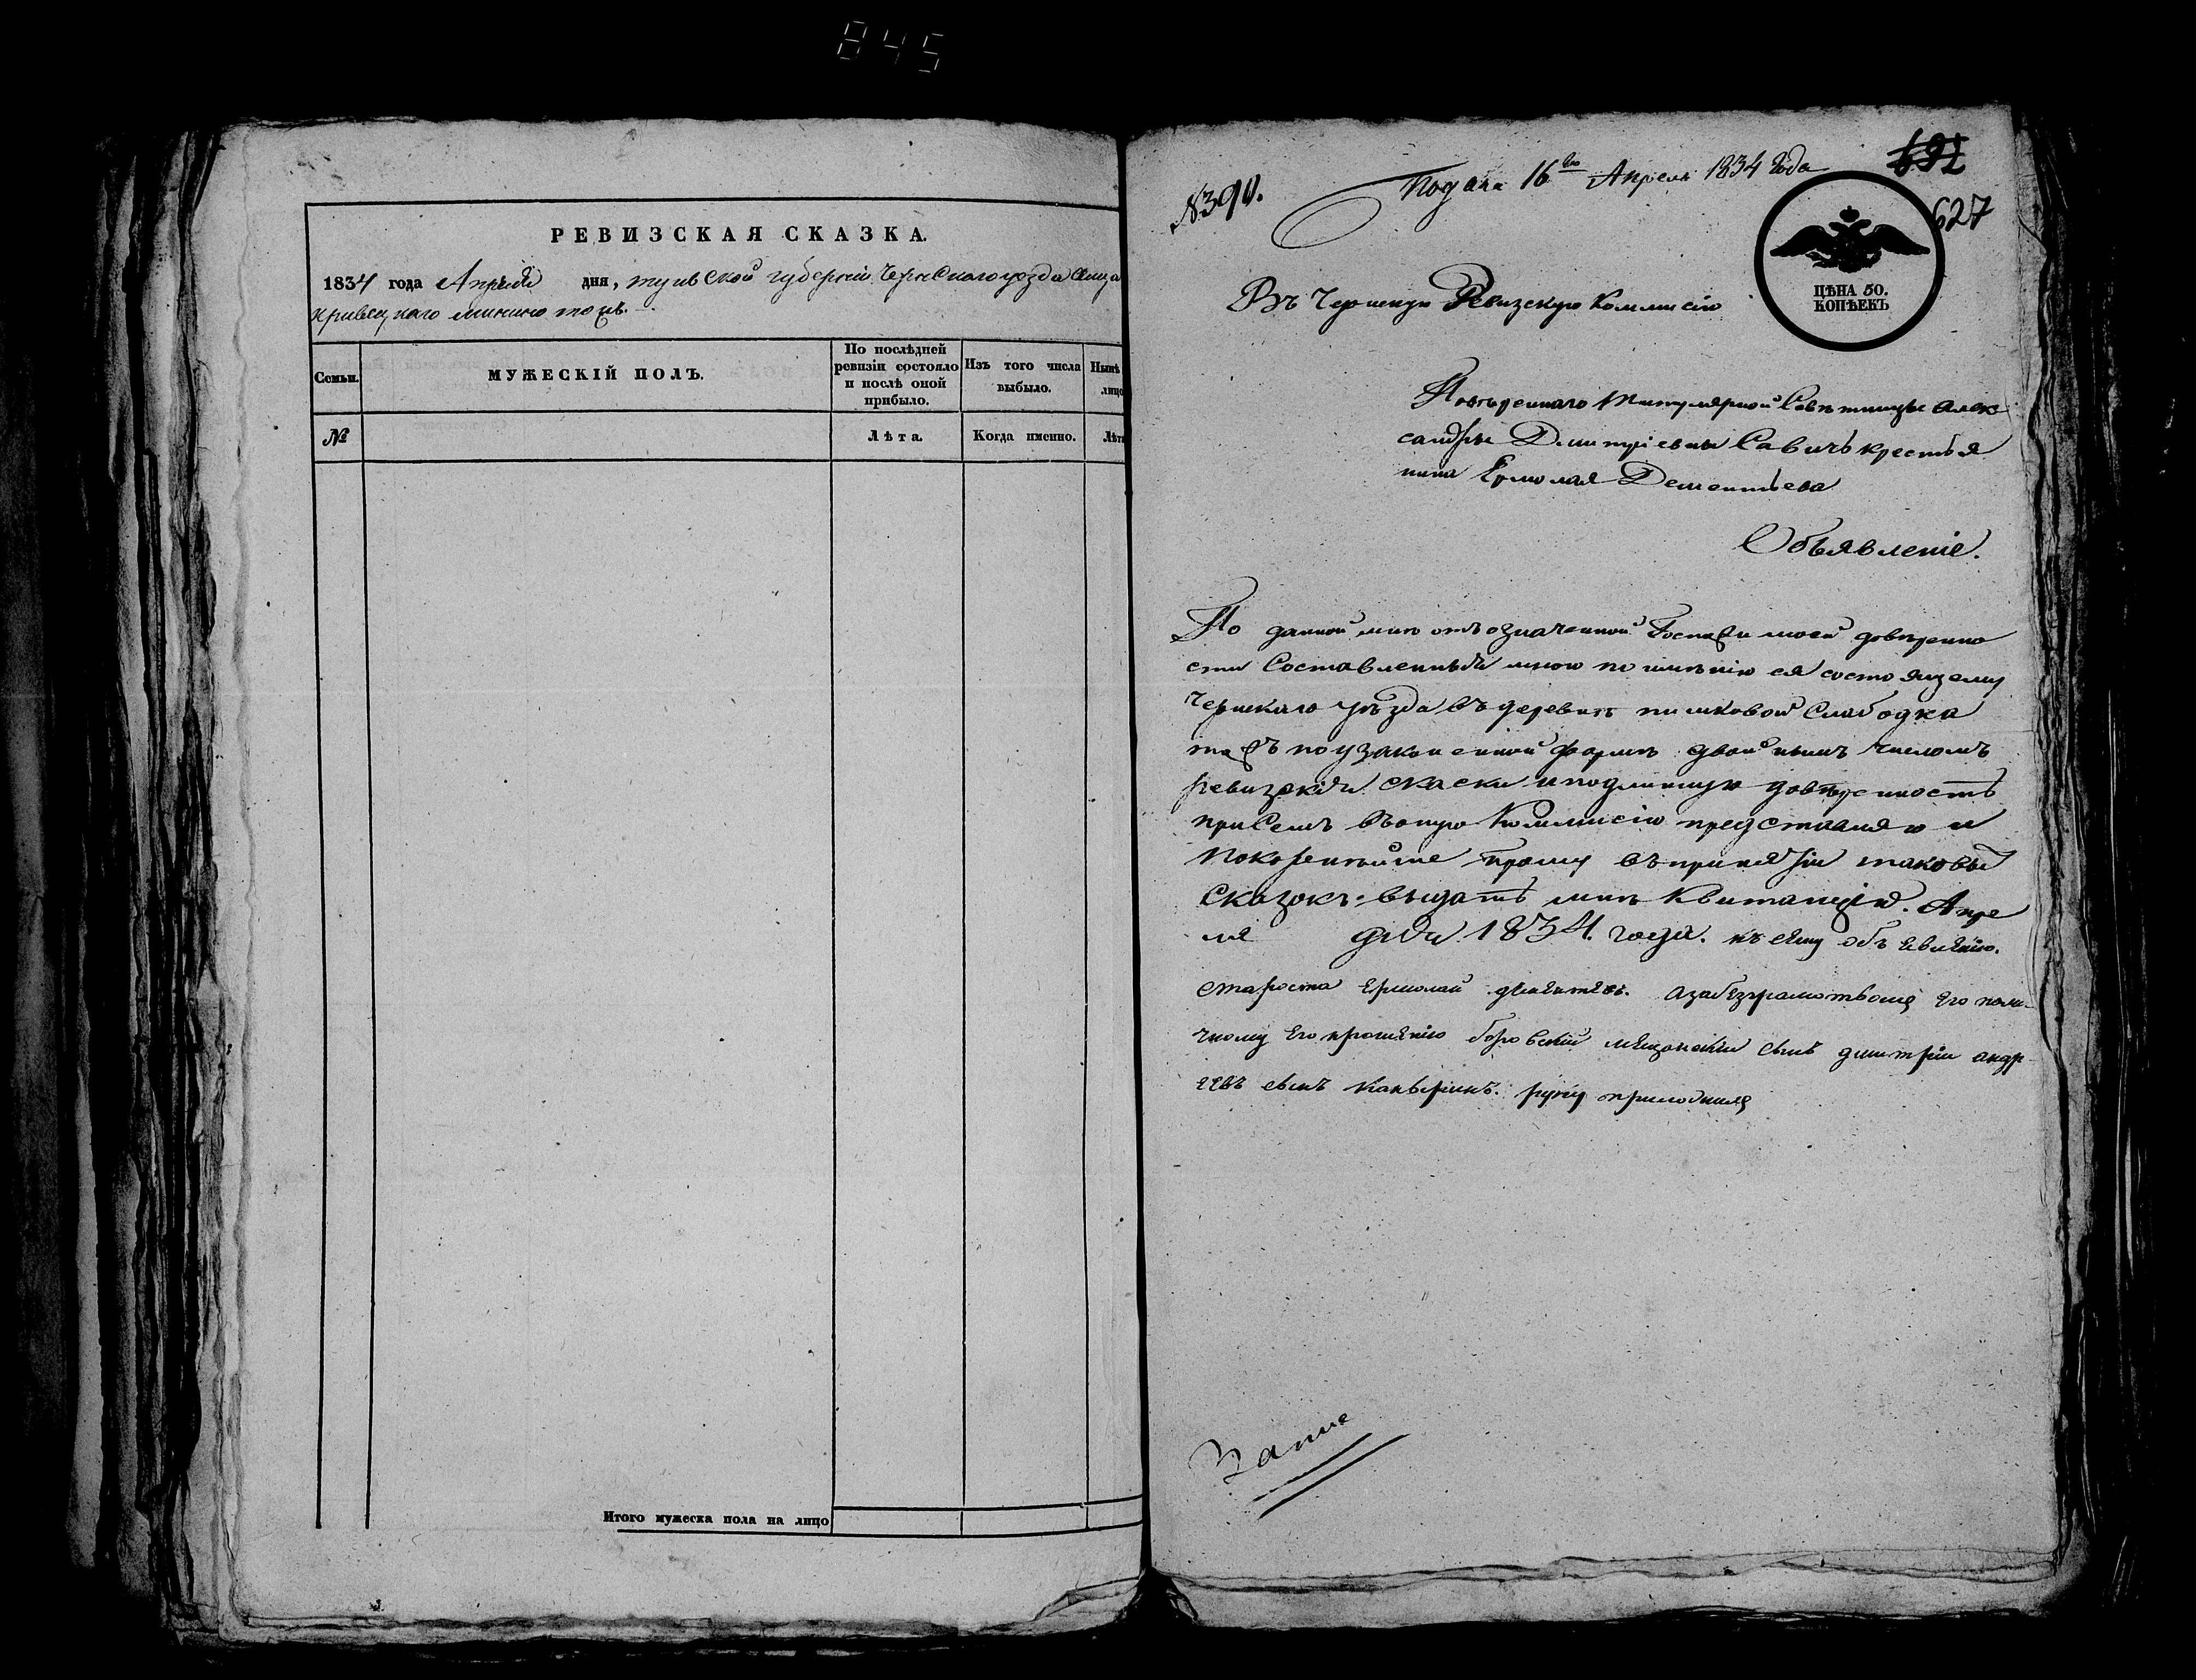 845
РЕВИЗСКАЯ СКАЗКА.
1834 года Апреля дня, тульской губерніи Чернскаго уезда сельца
Семьи.
МУЖЕСКІЙ ПОЛЪ.
По послѣдней ревизіи состояло и послѣ оной прибыло.
Изъ того числа выбыло.
Нынѣ
лицо
№
Лѣта.
Когда именно.
Лѣта
Итого мужеска пола на лицо
№390.
Подана 16го Апреля 1834 года
627
ЦѢНА 50.
КОПѢЕКЪ
Въ Чернскую Ревизскую Коммисію
Повѣреннаго Титулярной Совѣтницы Алек
сандры Дмитріевны Савичь крестья
нина Ермолая Дементьева
Объявленіе.
По данной мнѣ отъ означенной Госпожи моей довѣренно
сти Составленныя мною по имѣнію ея состоящему
Чернскаго уѣзда въ деревнѣ Слабодка
тожъ по узаконенной формѣ двойнымъ числомъ
ревизскія скаски и подлинную довѣренность
присемъ въ оную Коммисію представляю и
покорнѣйше прошу въ принятіи таковыхъ
Сказокъ выдать мнѣ Квитанцію. Апре
ля дня 1834. года. къ сему объевленію.
староста ермолай дементевъ. а за безграмотствомъ его по ли-
чному его прошенію боровский мещанский сынъ дмитрій андр
еевъ сынъ руку приложилъ